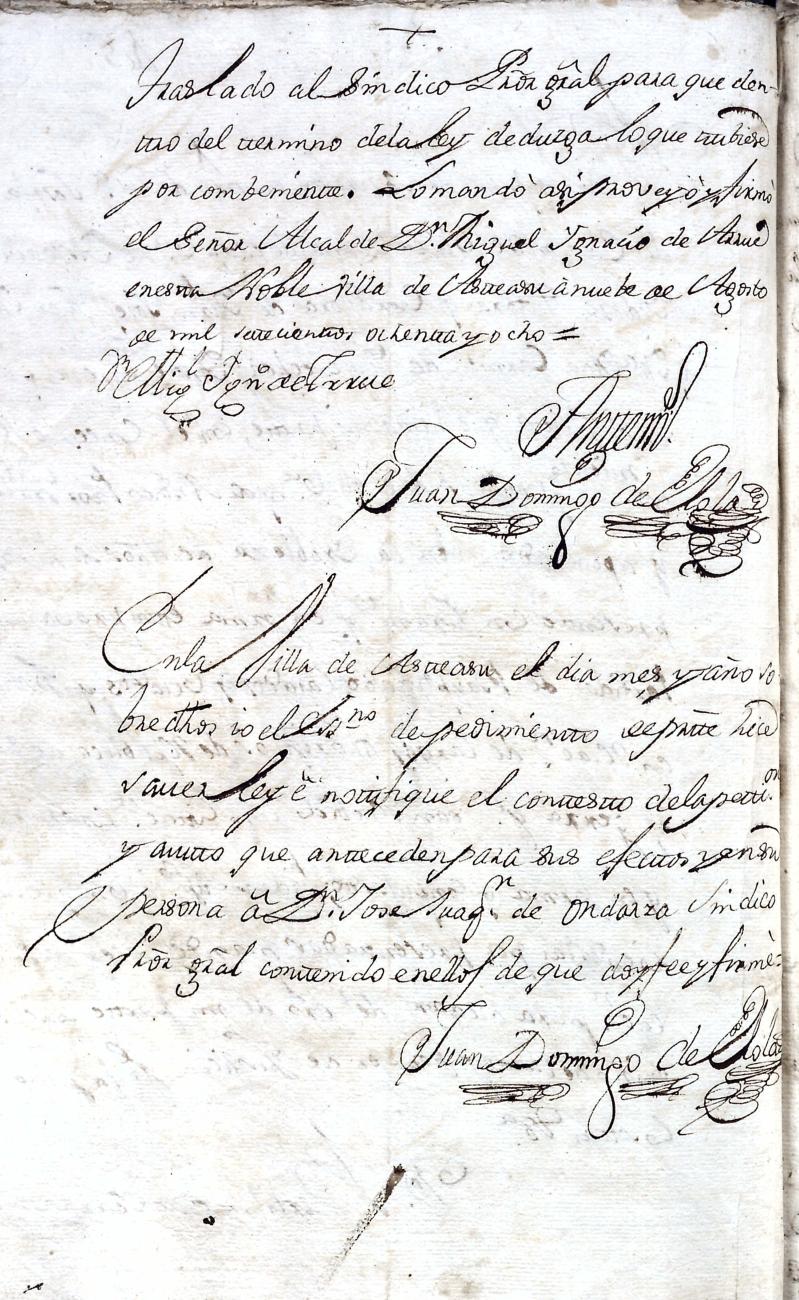 +
Traslado al Sindico Pror. gral para que den-
ttro del ttermino dela ley deduzga lo que ttubiese
por combeniente. Lo mandò asi, proveyò y firmò
el Señor Alcalde Dn. Miguel Ygnacio de Arrue
enestta Noble Villa de Astteasu à nuebe de Agosto
de mil settecienttos ochentta y ocho =
Dn. Migl. Ygno. de Arrue
Antte mi
Juan Domingo de Assola
Enla Villa de Astteasu el dia mes y año so
bre dhos io el Esno. de pedimientto de partte hice
saver ley è nottifique el conttestto dela petti.on
y autto que anttecedenpara sus efecttos y ensu
persona à Dn. Jose Juaqn. de Ondarza Sindico
Pror gral conttenido enellos de que doy fee y firmè=
Juan Domingo de Assola